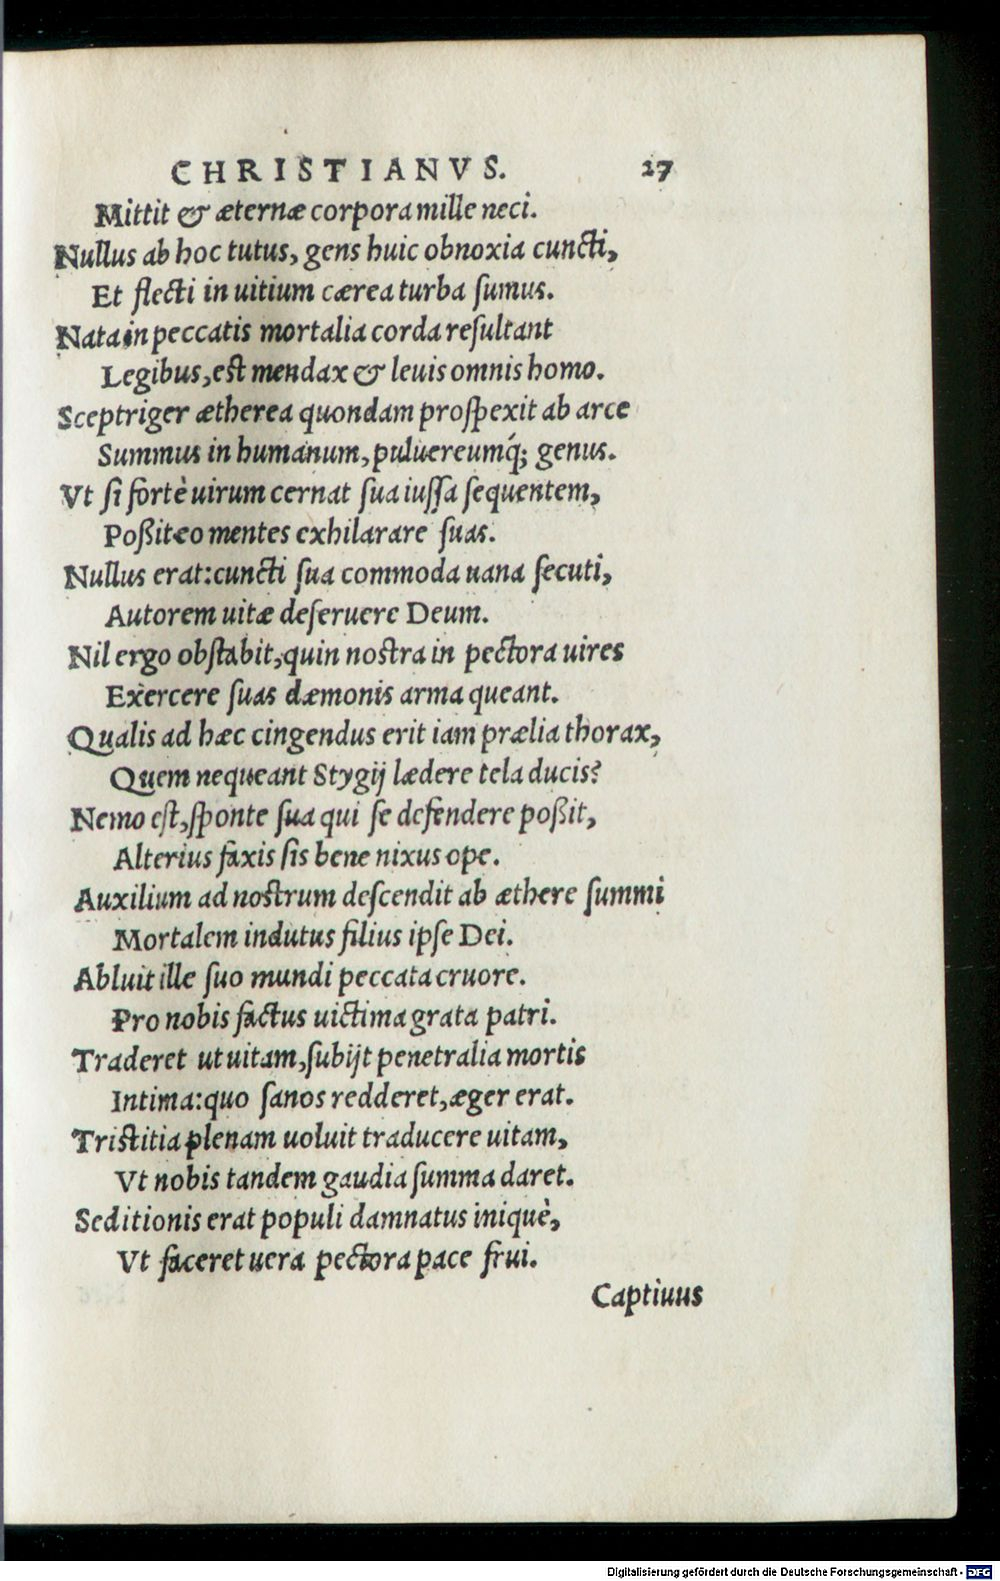 CHRISTIANVS. 27
Mittit & æternæ corpora mille neci.
Nullus ab hoc tutus, gens huic obnoxia cuncti,
Et flecti in uitium cærea turba ſumus.
Nata in peccatis mortalia corda reſultant
Legibus, est mendax & leuis omnis homo.
Sceptriger ætherea quondam proſpexit ab arce
Summus in humanum, puluereumq́; genus.
Vt ſi fortè uirum cernat ſua iuſſa ſequentem,
Poßit eo mentes exhilarare ſuas.
Nullus erat: cuncti ſua commoda uana ſecuti,
Autorem uitæ deſeruere Deum.
Nil ergo obſtabit, quin nostra in pectora uires
Exercere ſuas dæmonis arma queant.
Qualis ad hæc cingendus erit iam prælia thorax,
Quem nequeant Stygij lædere tela ducis?
Nemo eſt, ſponte ſua qui ſe defendere poßit,
Alterius faxis ſis bene nixus ope.
Auxilium ad nostrum deſcendit ab æthere ſummi
Mortalem indutus filius ipſe Dei.
Abluit ille ſuo mundi peccata cruore.
Pro nobis factus uictima grata patri.
Traderet ut uitam, ſubijt penetralia mortis
Intima: quo ſanos redderet, æger erat.
Tristitia plenam uoluit traducere uitam,
Vt nobis tandem gaudia ſumma daret.
Seditionis erat populi damnatus iniquè,
Vt faceret uera pectora pace frui.
Captiuus
Digitalisierung gefördert durch die Deutsche Forschungsgemeinschaft - DFG